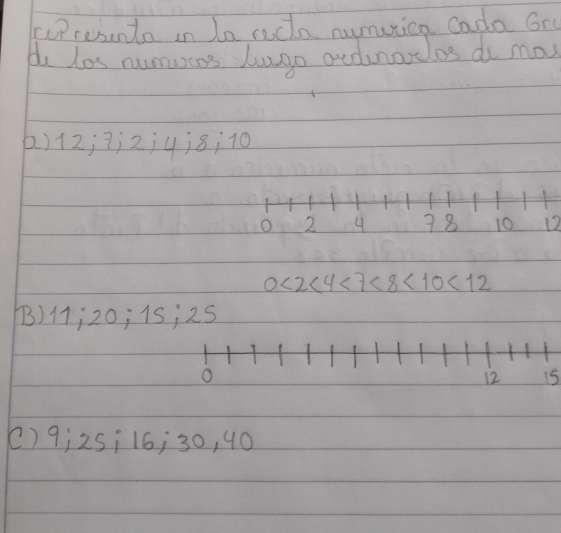 representa en la recta numerica cada Gru
de los numeros luego ordenarlos de may
a) 12; 7; 2; 4; 8; 10
0 2 4 7 8 10 12
0<2<4<7<8<10<12
B) 11; 20; 15; 25
0 12 15
C) 9; 25; 16; 30, 40